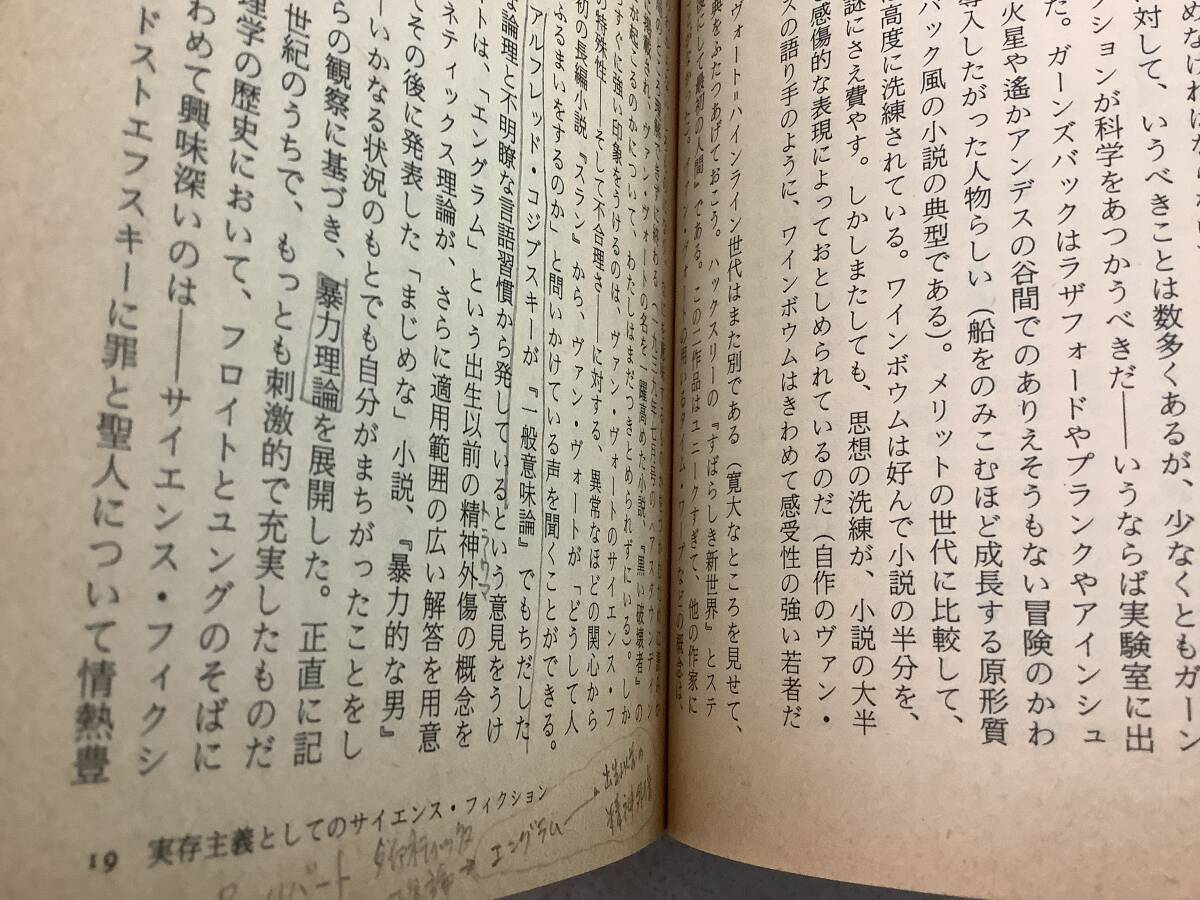 めなければならない
対して、いうべきことは数多くあるが、少なくともガーン
クションが科学をあつかうべきだ——いうならば実験室に出
た。ガーンズバックはラザフォードやプランクやアインシュ
火星や遙かアンデスの谷間でのありえそうもない冒険のかわ
導入したがった人物らしい（船をのみこむほど成長する原形質
バック風の小説の典型である）。メリットの世代に比較して、
は高度に洗練されている。ワインボウムは好んで小説の半分を、
謎にさえ費やす。しかしまたしても、思想の洗練が、小説の大半
感傷的な表現によっておとしめられているのだ（自作のヴァン・
スの語り手のように、ワインボウムはきわめて感受性の強い若者だ
ヴォート＝ハインライン世代はまた別である（寛大なところを見せて、
典をふたつあげておこう。ハックスリーの『すばらしき新世界』とステ
後にして最初の人間』である。この二作品はユニークすぎて、他の作家に
ヴァン・ヴォートの用いるタイム・ワープなどの概念は、
に掲載され、ヴァン・ヴォートの名を一躍高めた小説、『黒い破壊者』の
が起こるのかについて、わたしはまだつきとめられずにいる）。しか
らすぐに強い印象をうけるのは、ヴァン・ヴォートのサイエンス・フ
の特殊性——そして不合理さ——に対する、異常なほどの関心から
初の長編小説『スラン』から、ヴァン・ヴォートが「どうして人
ふるまいをするのか」と問いかけている声を聞くことができる。
アルフレッド・コジブスキーが『一般意味論』でもちだした
な論理と不明瞭な言語習慣から発している。という意見をうけ
ネティックス理論が、さらに適用範囲の広い解答を用意
トは、「エングラム」という出生以前の精神外傷の概念を
トラウマ
てその後に発表した「まじめな」小説、『暴力的な男』
ーいかなる状況のもとでも自分がまちがったことをし
らの観察に基づき、暴力理論を展開した。正直に記
世紀のうちで、もっとも刺激的で充実したものだ
理学の歴史において、フロイトとユングのそばに
わめて興味深いのは——サイエンス・フィクシ
ドストエフスキーに罪と聖人について情熱豊
19 実存主義としてのサイエンス・フィクション
エングラム